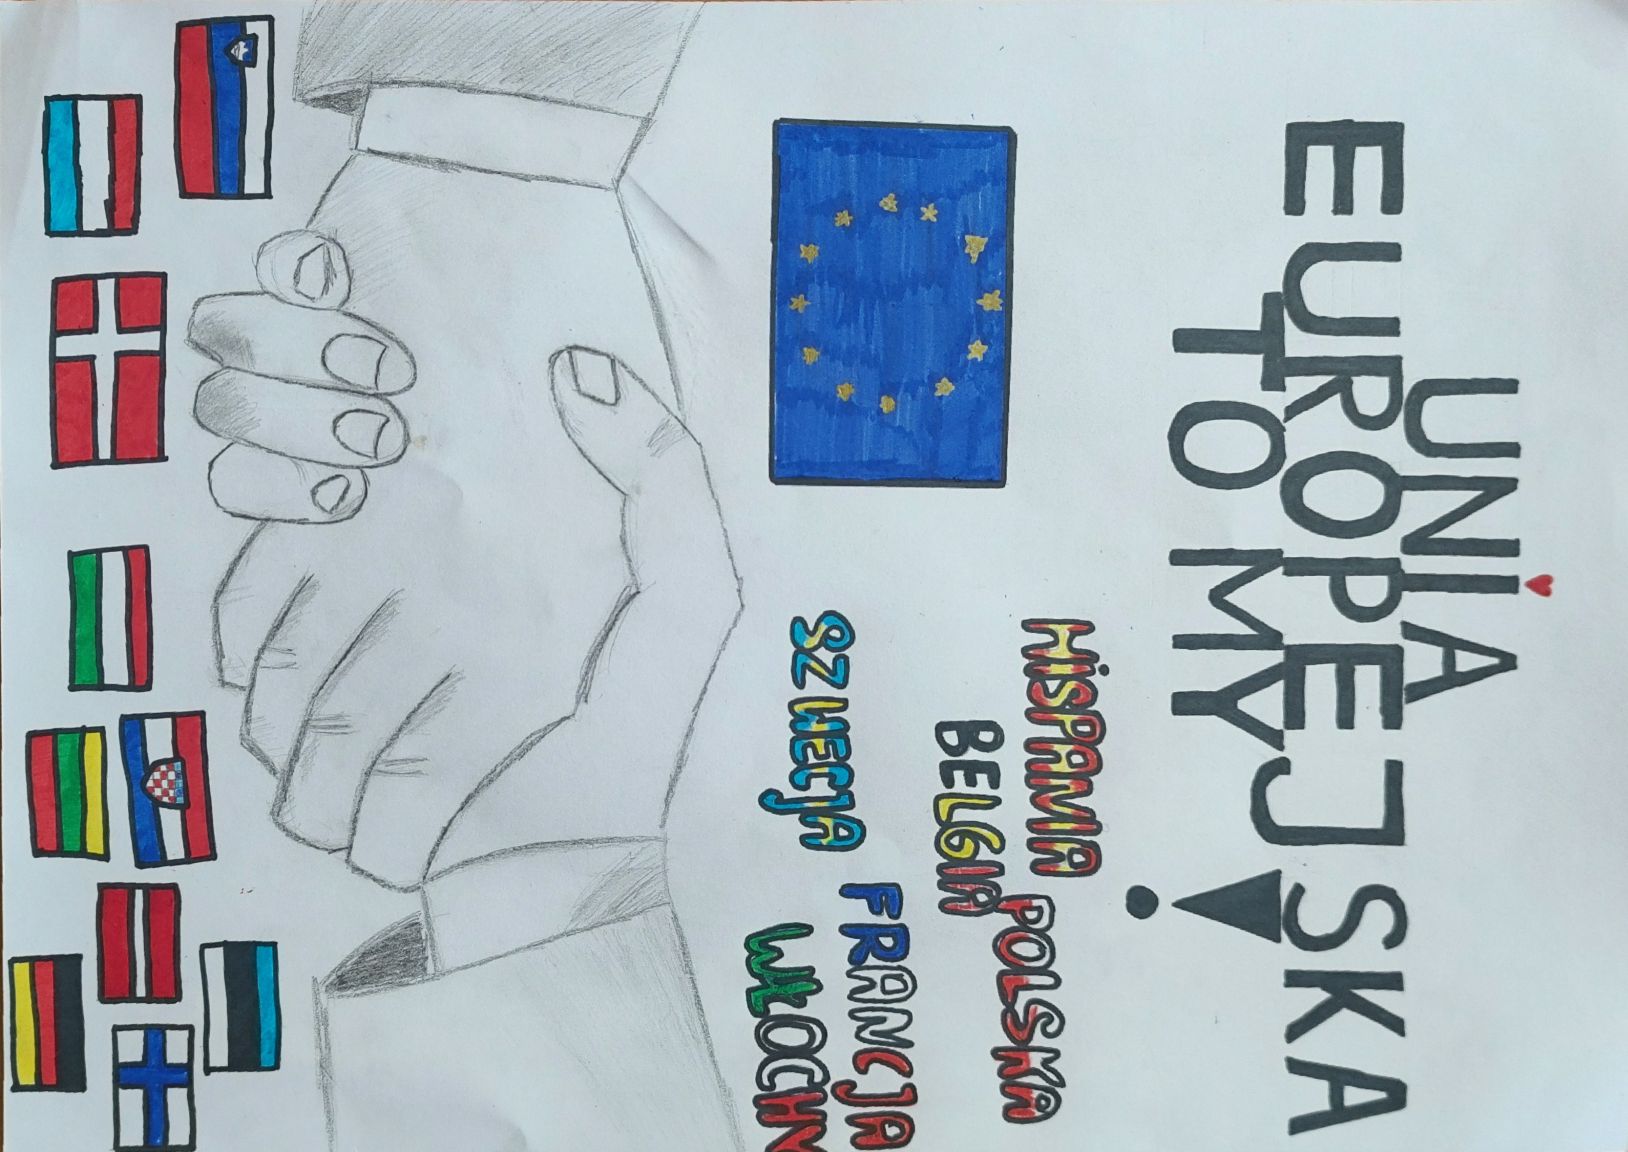 UNIA
EUROPEJSKA
TO MY!
HISZPANIA
POLSKA
BELGIA
SZWECJA
FRANCJA
WŁOCHY